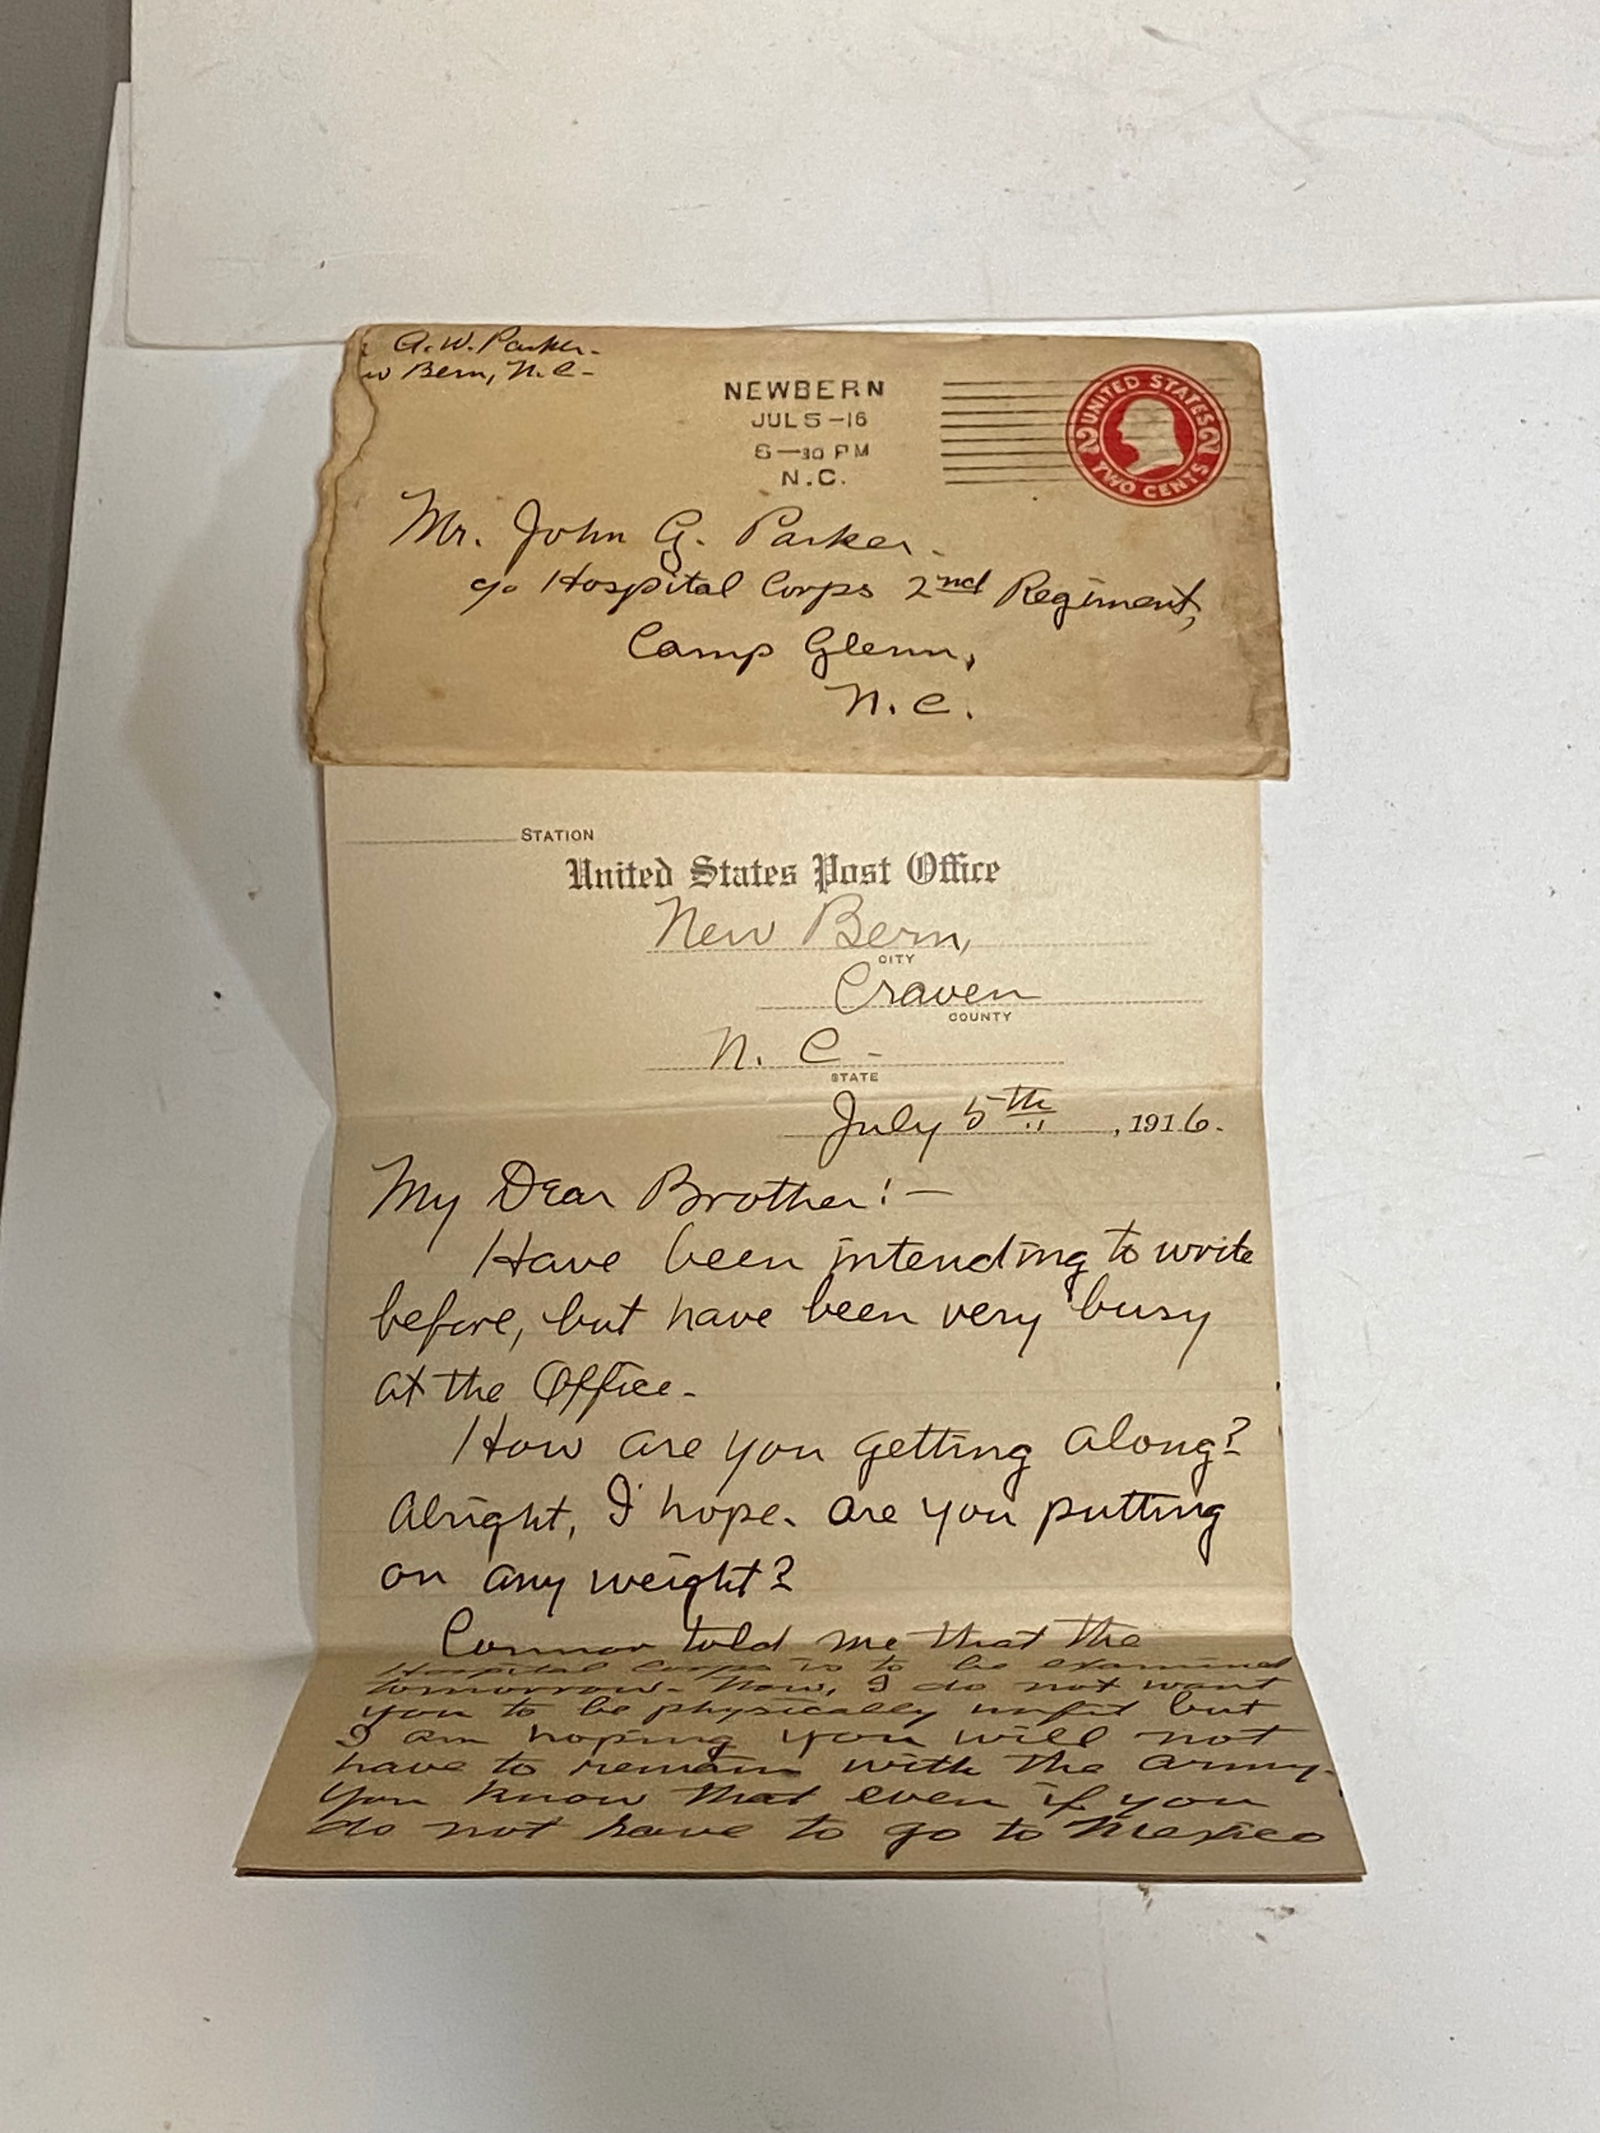 A. W. Parker.
w Bern, N.C.
NEWBERN
JUL 5-16
6-30 PM
N.C.
UNITED STATES
2 2
TWO CENTS
Mr. John G. Parker.
c/o Hospital Corps 2nd Regiment,
Camp Glenn,
N.C.
STATION
United States Post Office
New Bern,
CITY
Craven
COUNTY
N. C.
STATE
July 5th, 1916.
My Dear Brother!-
Have been intending to write
before, but have been very busy
at the Office.
How are you getting along?
Alright, I hope. Are you putting
on any weight?
Connor told me that the
Hospital Corps is to be examined
tomorrow. Now, I do not want
you to be physically unfit but
I am hoping you will not
have to remain with the army.
You know that even if you
do not have to go to Mexico